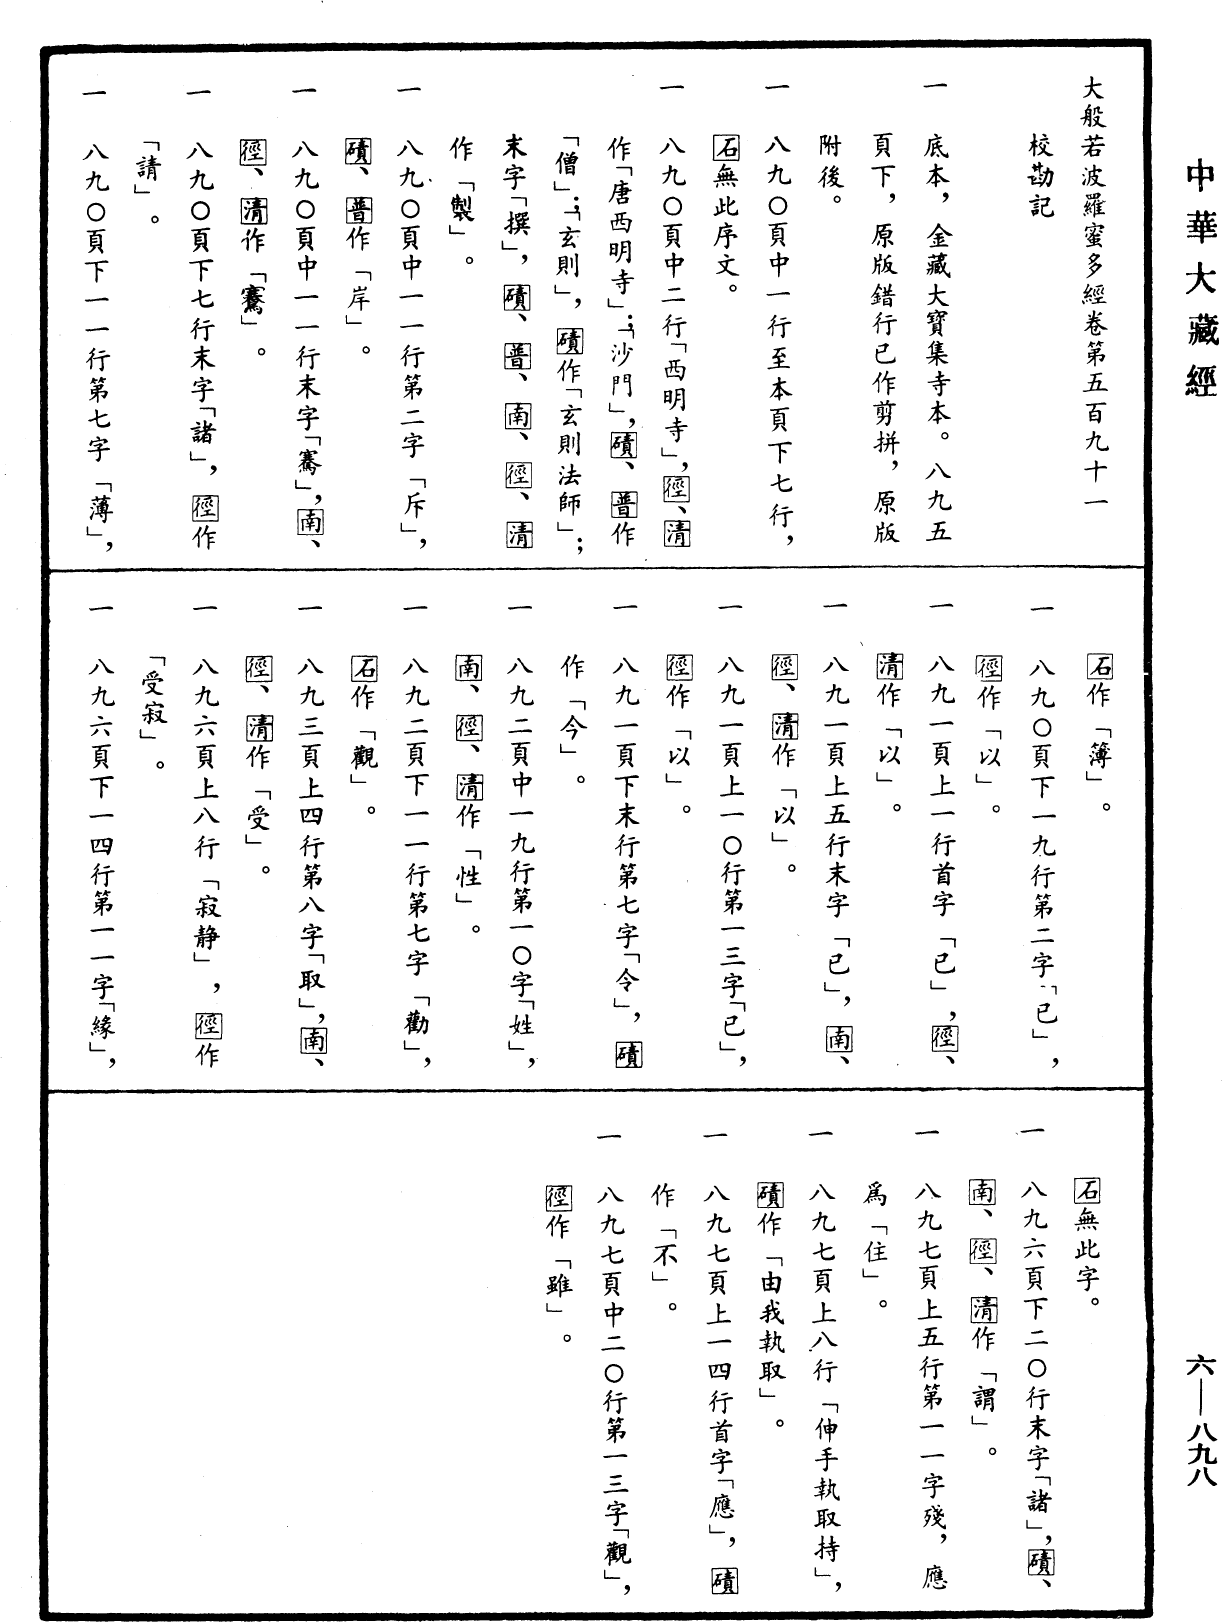 中華大藏經
大般若波羅蜜多經卷第五百九十一
校勘記
一 底本，金藏大寶集寺本。八九五
頁下，原版錯行已作剪拼，原版
附後。
一 八九〇頁中一行至本頁下七行，
石無此序文。
一 八九〇頁中二行「西明寺」，徑、清
作「唐西明寺」；「沙門」，磧、普作
「僧」；「玄則」，磧作「玄則法師」；
末字「撰」，磧、普、南、徑、清
作「製」。
一 八九〇頁中一一行第二字「斥」，
磧、普作「岸」。
一 八九〇頁中一一行末字「騫」，南、
徑、清作「鶱」。
一 八九〇頁下七行末字「諸」，徑作
「請」。
一 八九〇頁下一一行第七字「薄」，
石作「簿」。
一 八九〇頁下一九行第二字「已」，
徑作「以」。
一 八九一頁上一行首字「已」，徑、
清作「以」。
一 八九一頁上五行末字「已」，南、
徑、清作「以」。
一 八九一頁上一〇行第一三字「已」，
徑作「以」。
一 八九一頁下末行第七字「令」，磧
作「今」。
一 八九二頁中一九行第一〇字「姓」，
南、徑、清作「性」。
一 八九二頁下一一行第七字「勸」，
石作「觀」。
一 八九三頁上四行第八字「取」，南、
徑、清作「受」。
一 八九六頁上八行「寂静」，徑作
「受寂」。
一 八九六頁下一四行第一一字「緣」，
石無此字。
一 八九六頁下二〇行末字「諸」，磧、
南、徑、清作「謂」。
一 八九七頁上五行第一一字殘，應
爲「住」。
一 八九七頁上八行「伸手執取持」，
磧作「由我執取」。
一 八九七頁上一四行首字「應」，磧
作「不」。
一 八九七頁中二〇行第一三字「觀」，
徑作「雖」。
六—八九八